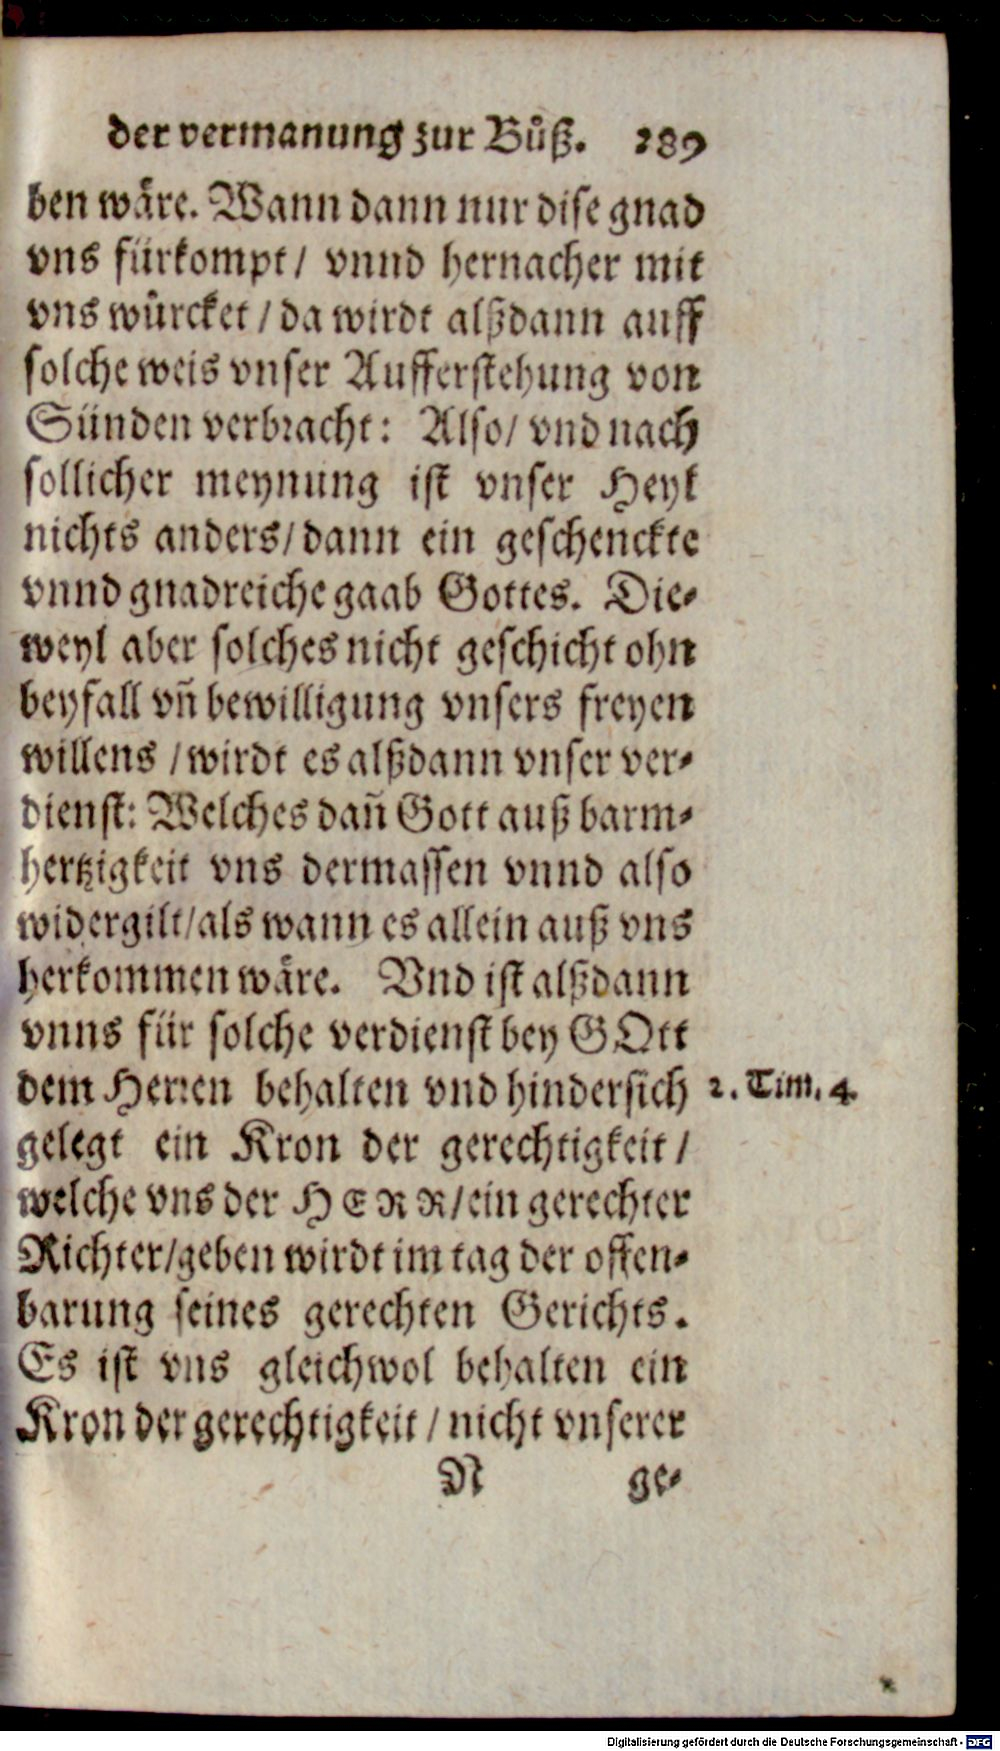 der vermanung zur Bůß. 289
ben wåre. Wann dann nur dise gnad
vns fürkompt / vnnd hernacher mit
vns wůrcket / da wirdt alßdann auff
solche weis vnser Aufferstehung von
Sünden verbracht: Also / vnd nach
sollicher meynung ist vnser Heyl
nichts anders / dann ein geschenckte
vnnd gnadreiche gaab Gottes. Die-
weyl aber solches nicht geschicht ohn
beyfall vñ bewilligung vnsers freyen
willens / wirdt es alßdann vnser ver-
dienst: Welches dañ Gott auß barm-
hertzigkeit vns dermassen vnnd also
widergilt / als wann es allein auß vns
herkommen wåre. Vnd ist alßdann
vnns für solche verdienst bey GOtt
dem Herren behalten vnd hindersich
2. Tim. 4.
gelegt ein Kron der gerechtigkeit /
welche vns der HERR / ein gerechter
Richter / geben wirdt im tag der offen-
barung seines gerechten Gerichts.
Es ist vns gleichwol behalten ein
Kron der gerechtigkeit / nicht vnserer
N ge-
Digitalisierung gefördert durch die Deutsche Forschungsgemeinschaft - DFG